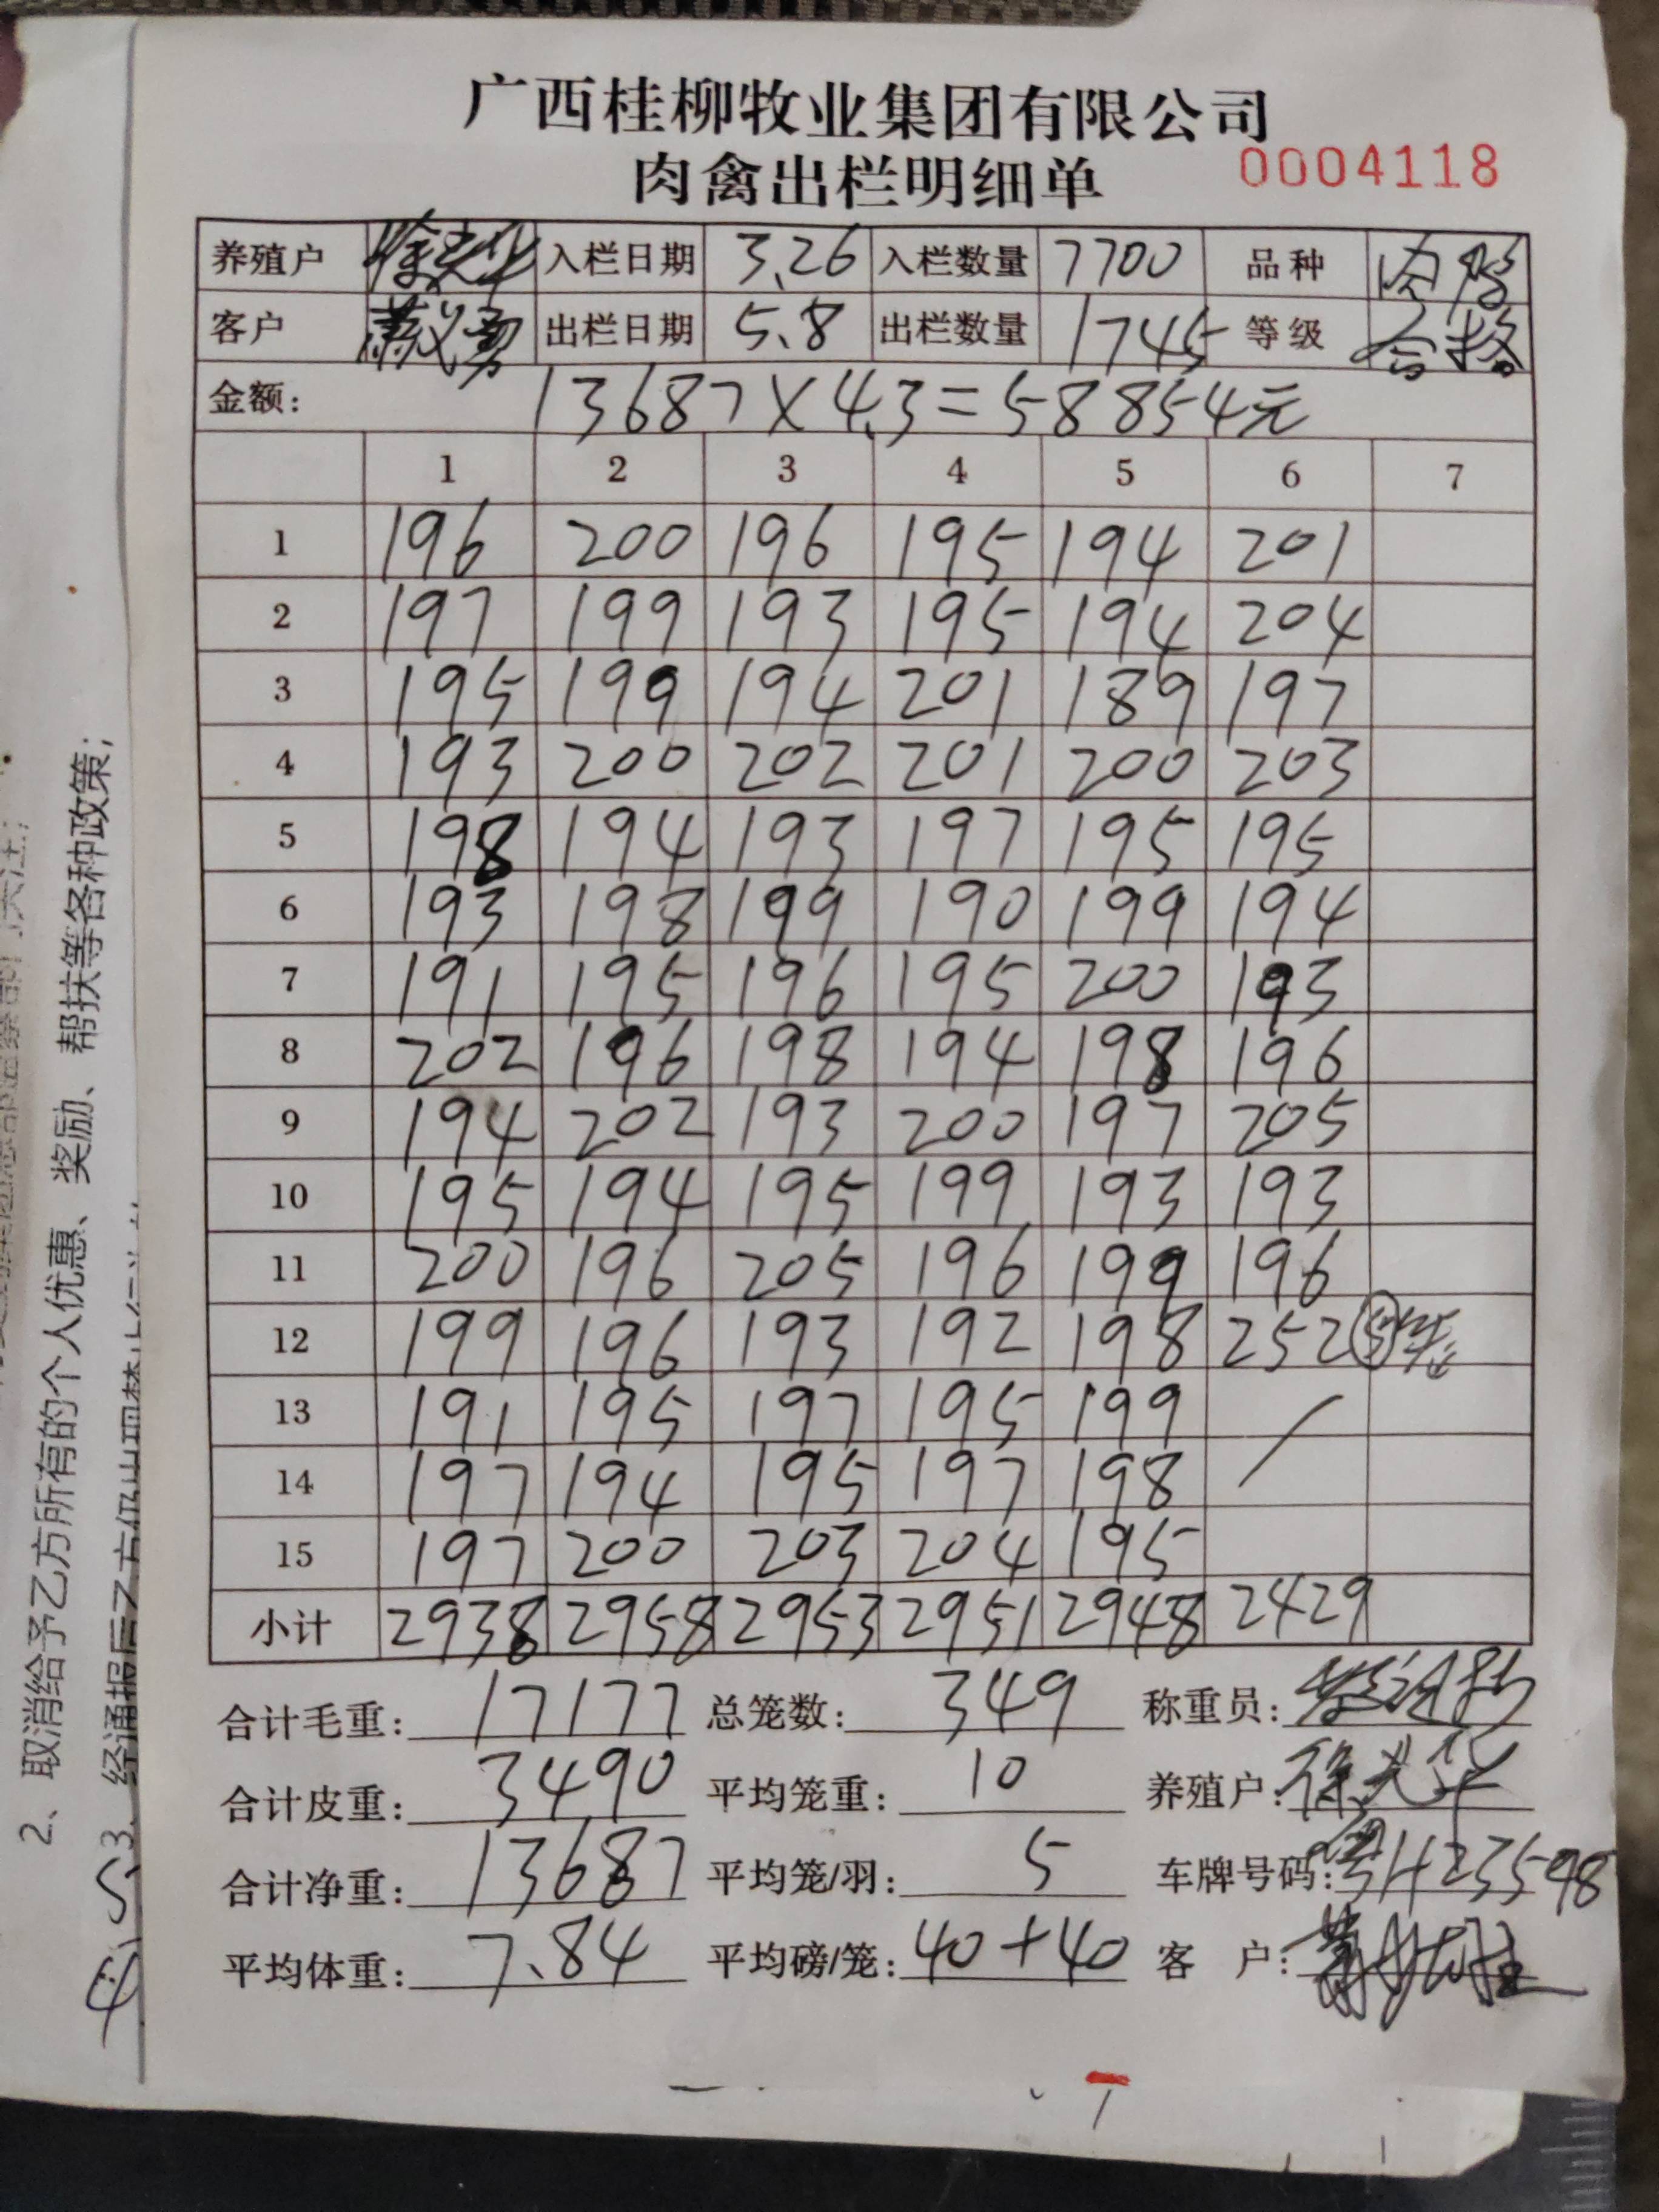 广西桂柳牧业集团有限公司
肉禽出栏明细单 0004118
养殖户 徐光华 入栏日期 3.26 入栏数量 7700 品种 肉鸭
客户 萧义勇 出栏日期 5.8 出栏数量 1745 等级 合格
金额: 13687×4.3=58854元
1 2 3 4 5 6 7
1 196 200 196 195 194 201
2 197 199 193 195 194 204
3 195 199 194 201 189 197
4 193 200 202 201 200 203
5 198 194 193 197 195 195
6 193 198 199 190 199 194
7 191 195 196 195 200 193
8 202 196 198 194 198 196
9 194 202 193 200 197 205
10 195 194 195 199 193 193
11 200 196 205 196 199 196
12 199 196 193 192 198 252 5笼
13 191 195 197 195 199
14 197 194 195 197 198
15 197 200 203 204 195
小计 2938 2958 2953 2951 2948 2429
合计毛重: 17177 总笼数: 349 称重员:
合计皮重: 3490 平均笼重: 10 养殖户: 徐光华
合计净重: 13687 平均笼/羽: 5 车牌号码:
平均体重: 7.84 平均磅/笼: 40+40 客 户:
2、取消给予乙方所有的个人优惠、奖励、帮扶等各种政策;
3、经通报后乙方仍出现